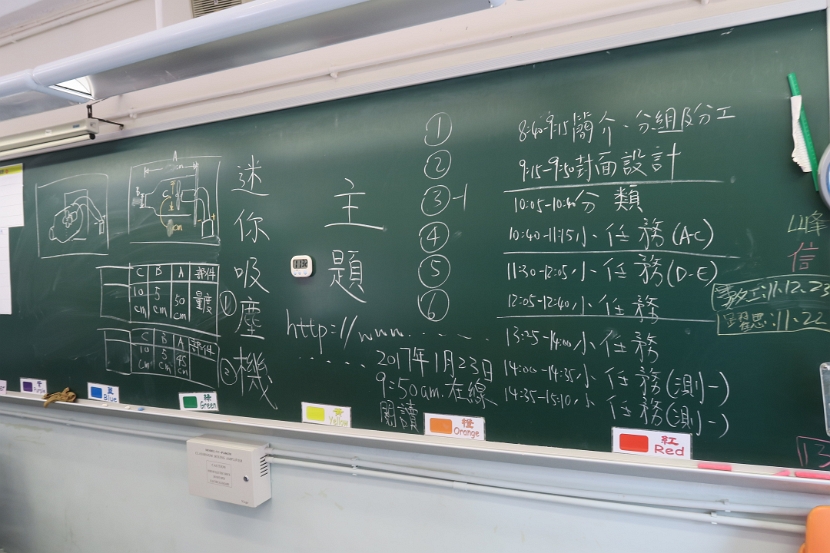 迷你吸塵機
A
B
C
cm
C B A 部件
10cm 5cm 50cm 量度
①
C B A 部件
10cm 5cm 45cm
②
主題
http://www.......
.....2017年1月23日
9:50am.在線
閱讀
①
②
③-1
④
⑤
⑥
8:40-9:15簡介、分組及分工
9:15-9:50封面設計
10:05-10:40分類
10:40-11:15小任務(A-C)
11:30-12:05小任務(D-E)
12:05-12:40小任務
13:25-14:00小任務
14:00-14:35小任務(測一)
14:35-15:10小任務(測一)
峰
信
數工:11,12,23
習思:11,22
113
紫 Purple
藍 Blue
綠 Green
黃 Yellow
橙 Orange
紅 Red